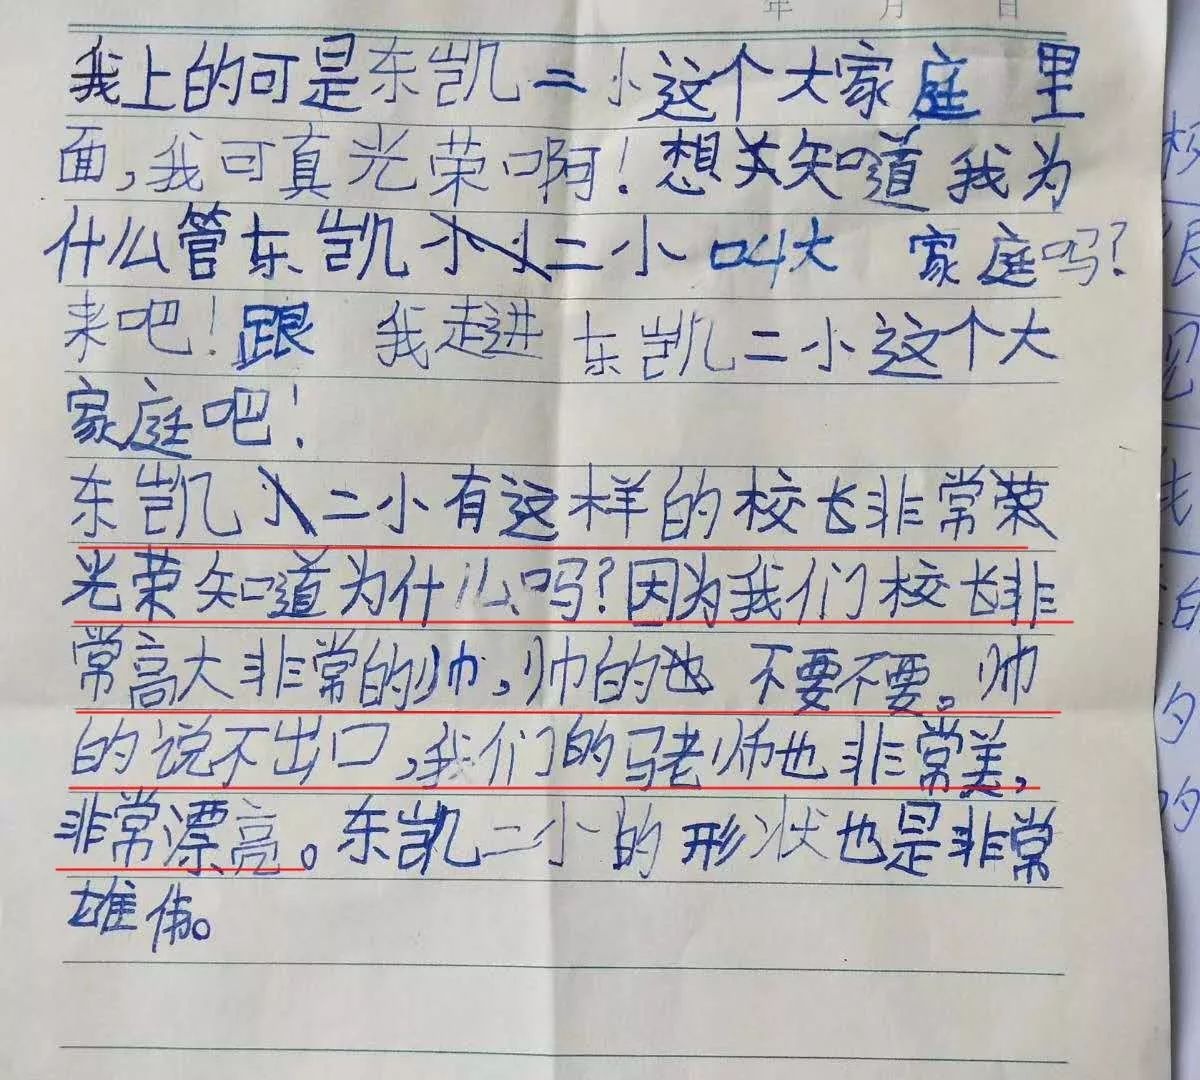 年 月 日
我上的可是东凯二小这个大家庭 里
面,我可真光荣啊!想关知道我为
什么管东凯小小二小叫大 家庭吗?
来吧!跟 我走进 东凯二小这个大
家庭吧!
东凯小二小有这样的校长非常荣
光荣知道为什么吗?因为我们校长非
常高大非常的帅,帅的也 不要不要。帅
的说不出口,我们的马老师也非常美,
非常漂亮。东凯二小的形状也是非常
雄伟。